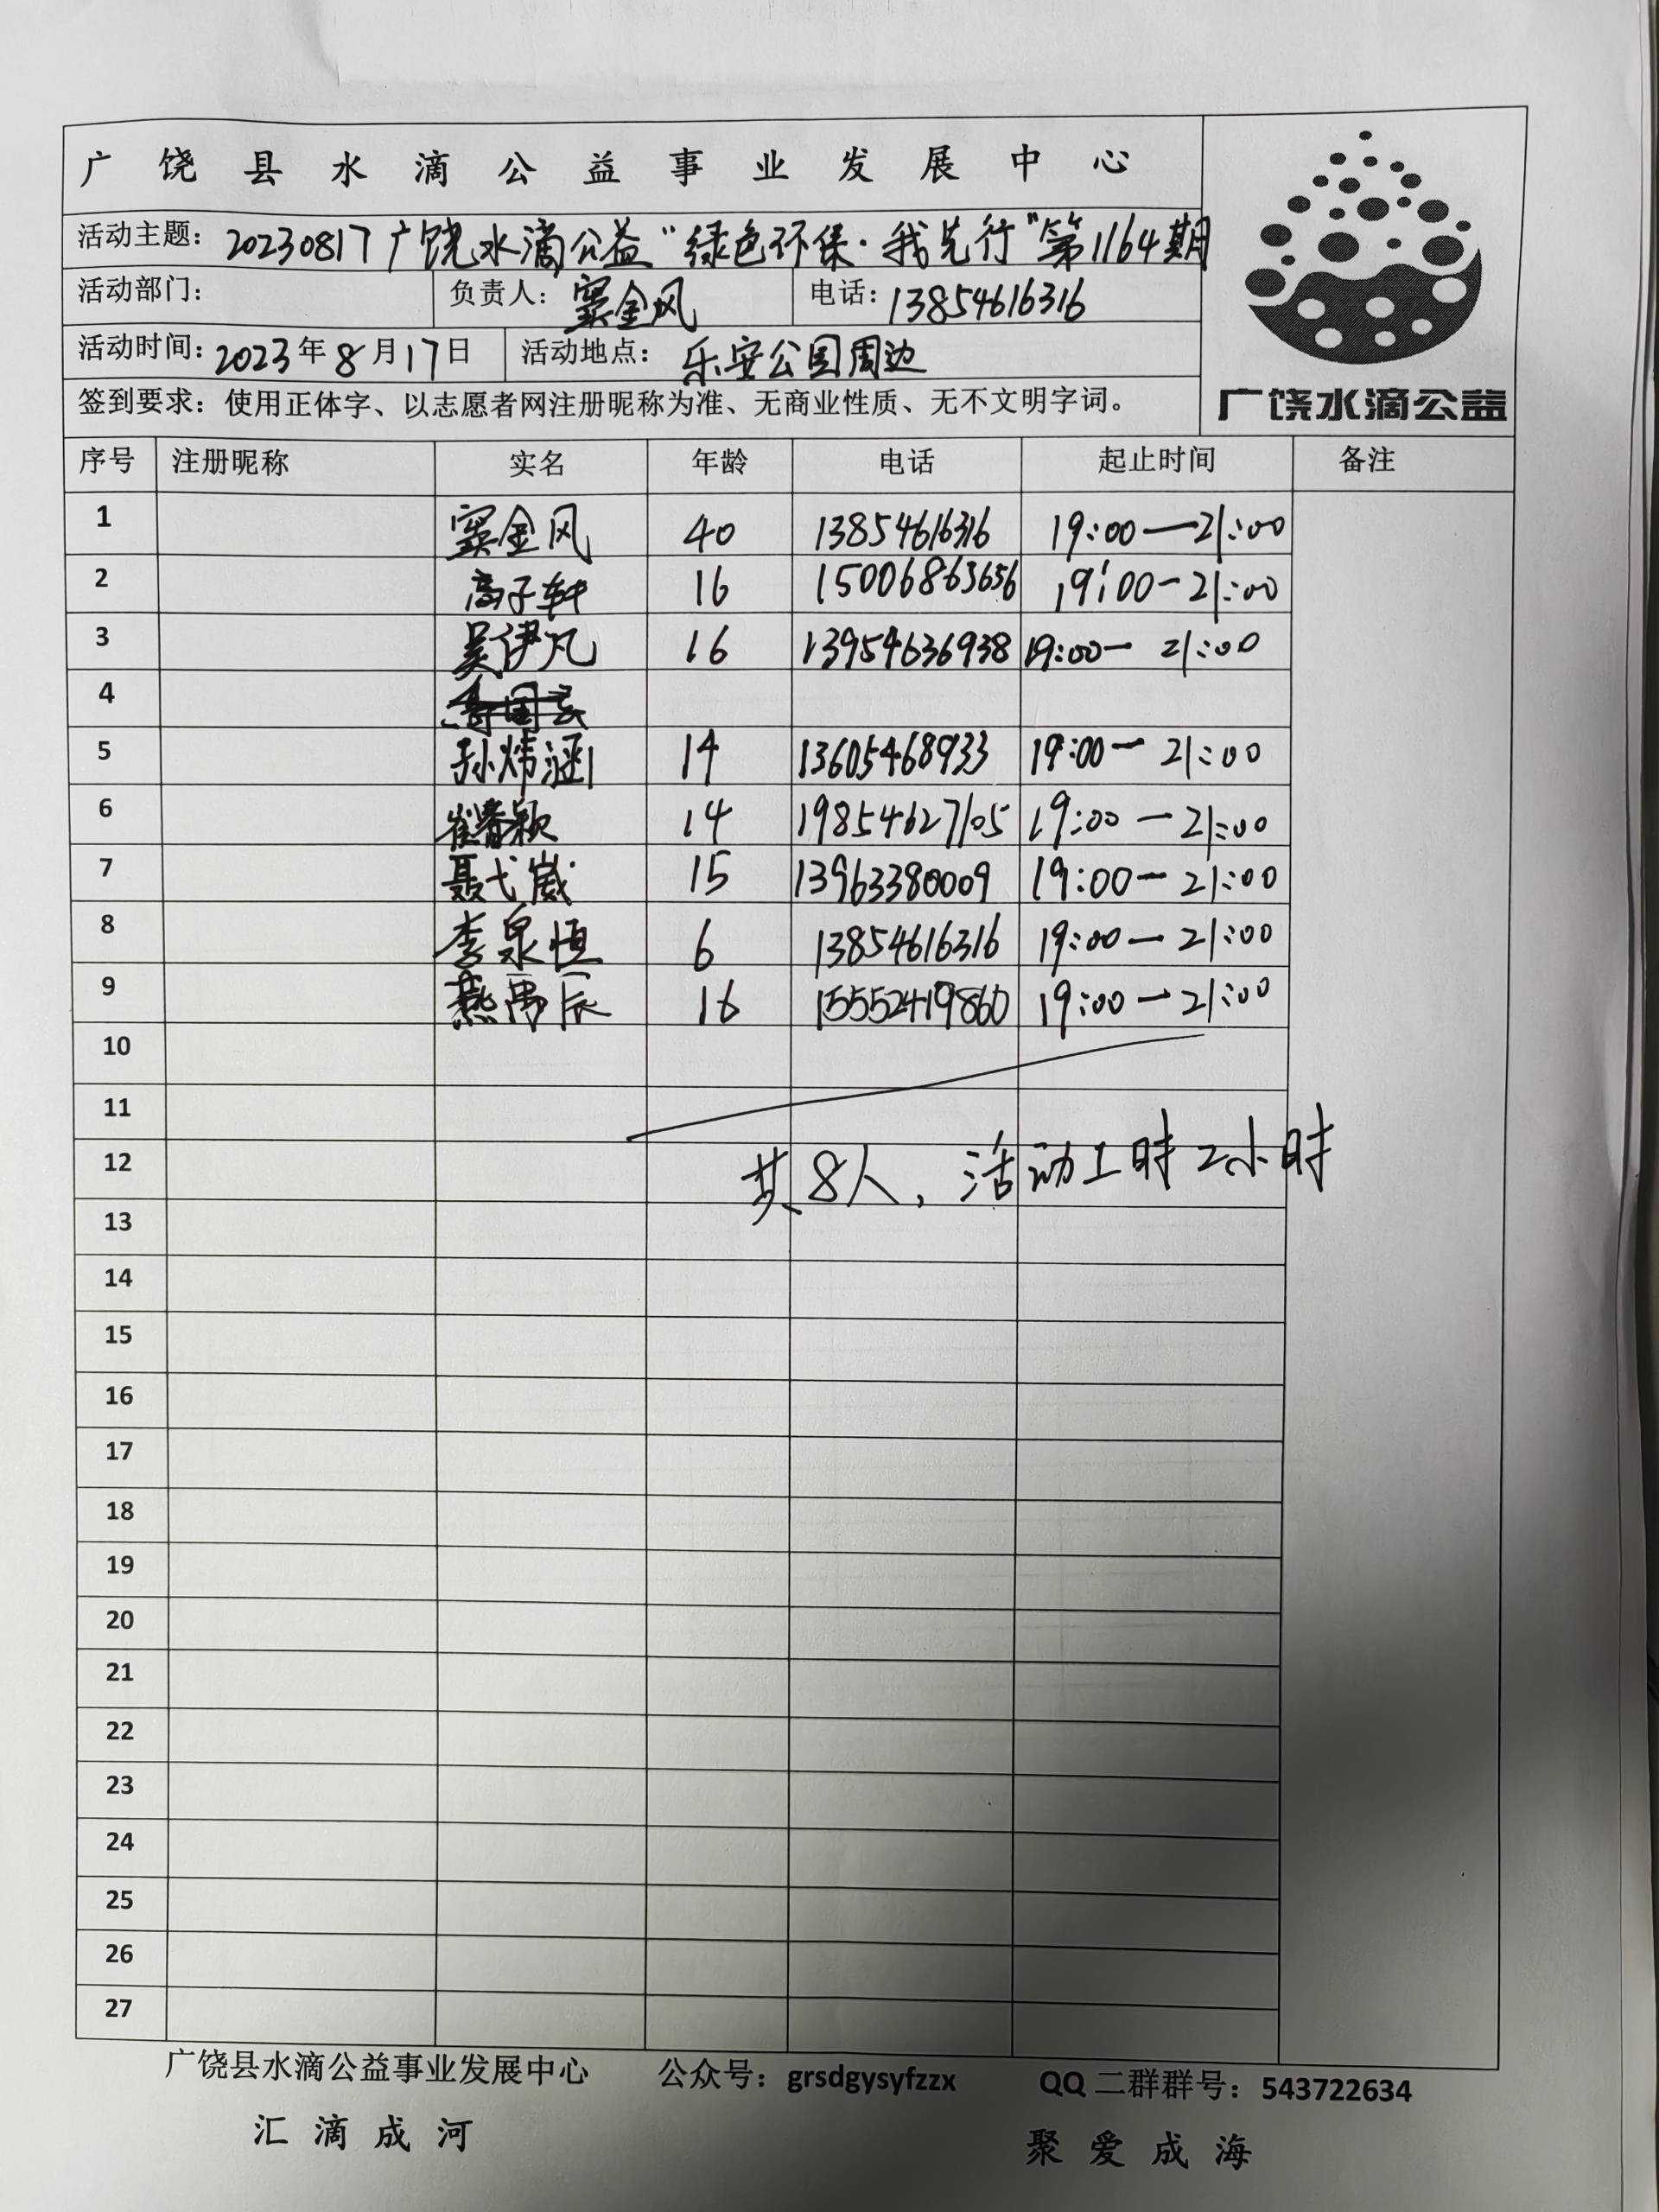 广饶县水滴公益事业发展中心
活动主题：20230817广饶水滴公益“绿色环保·我先行”第1164期
活动部门： 负责人：窦金风 电话：13854616316
活动时间：2023年8月17日 活动地点：乐安公园周边
签到要求：使用正体字、以志愿者网注册昵称为准、无商业性质、无不文明字词。
广饶水滴公益
序号 注册昵称 实名 年龄 电话 起止时间 备注
1 窦金风 40 13854616316 19:00—21:00
2 高子轩 16 15006863656 19:00-21:00
3 吴伊凡 16 13954636938 19:00-21:00
4
5 孙炜涵 14 13605468933 19:00-21:00
6 崔春颖 14 19854627105 19:00-21:00
7 聂弋崴 15 13963380009 19:00-21:00
8 李泉恒 6 13854616316 19:00-21:00
9 燕禹辰 16 15552419860 19:00-21:00
10
11
12 共8人，活动工时2小时
13
14
15
16
17
18
19
20
21
22
23
24
25
26
27
广饶县水滴公益事业发展中心 公众号：grsdgysyfzzx QQ二群群号：543722634
汇滴成河 聚爱成海